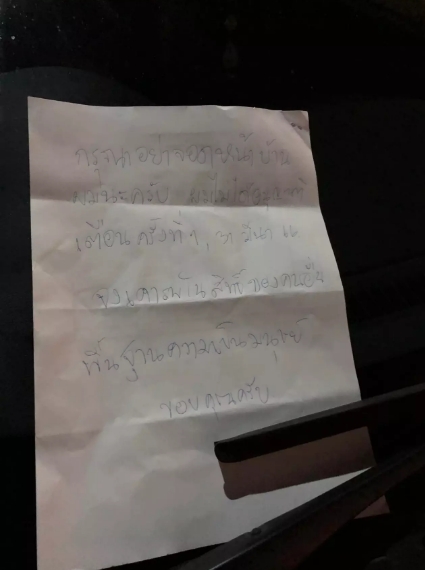 กรุณาอย่าจอดหน้าบ้าน
ผมนะครับ ผมไม่ได้
เตือนครั้งที่ 1, 31 มีนา 66
จงเคารพในสิทธิ์ของคนอื่น
พื้นฐานความเป็นมนุษย์
ขอบคุณครับ